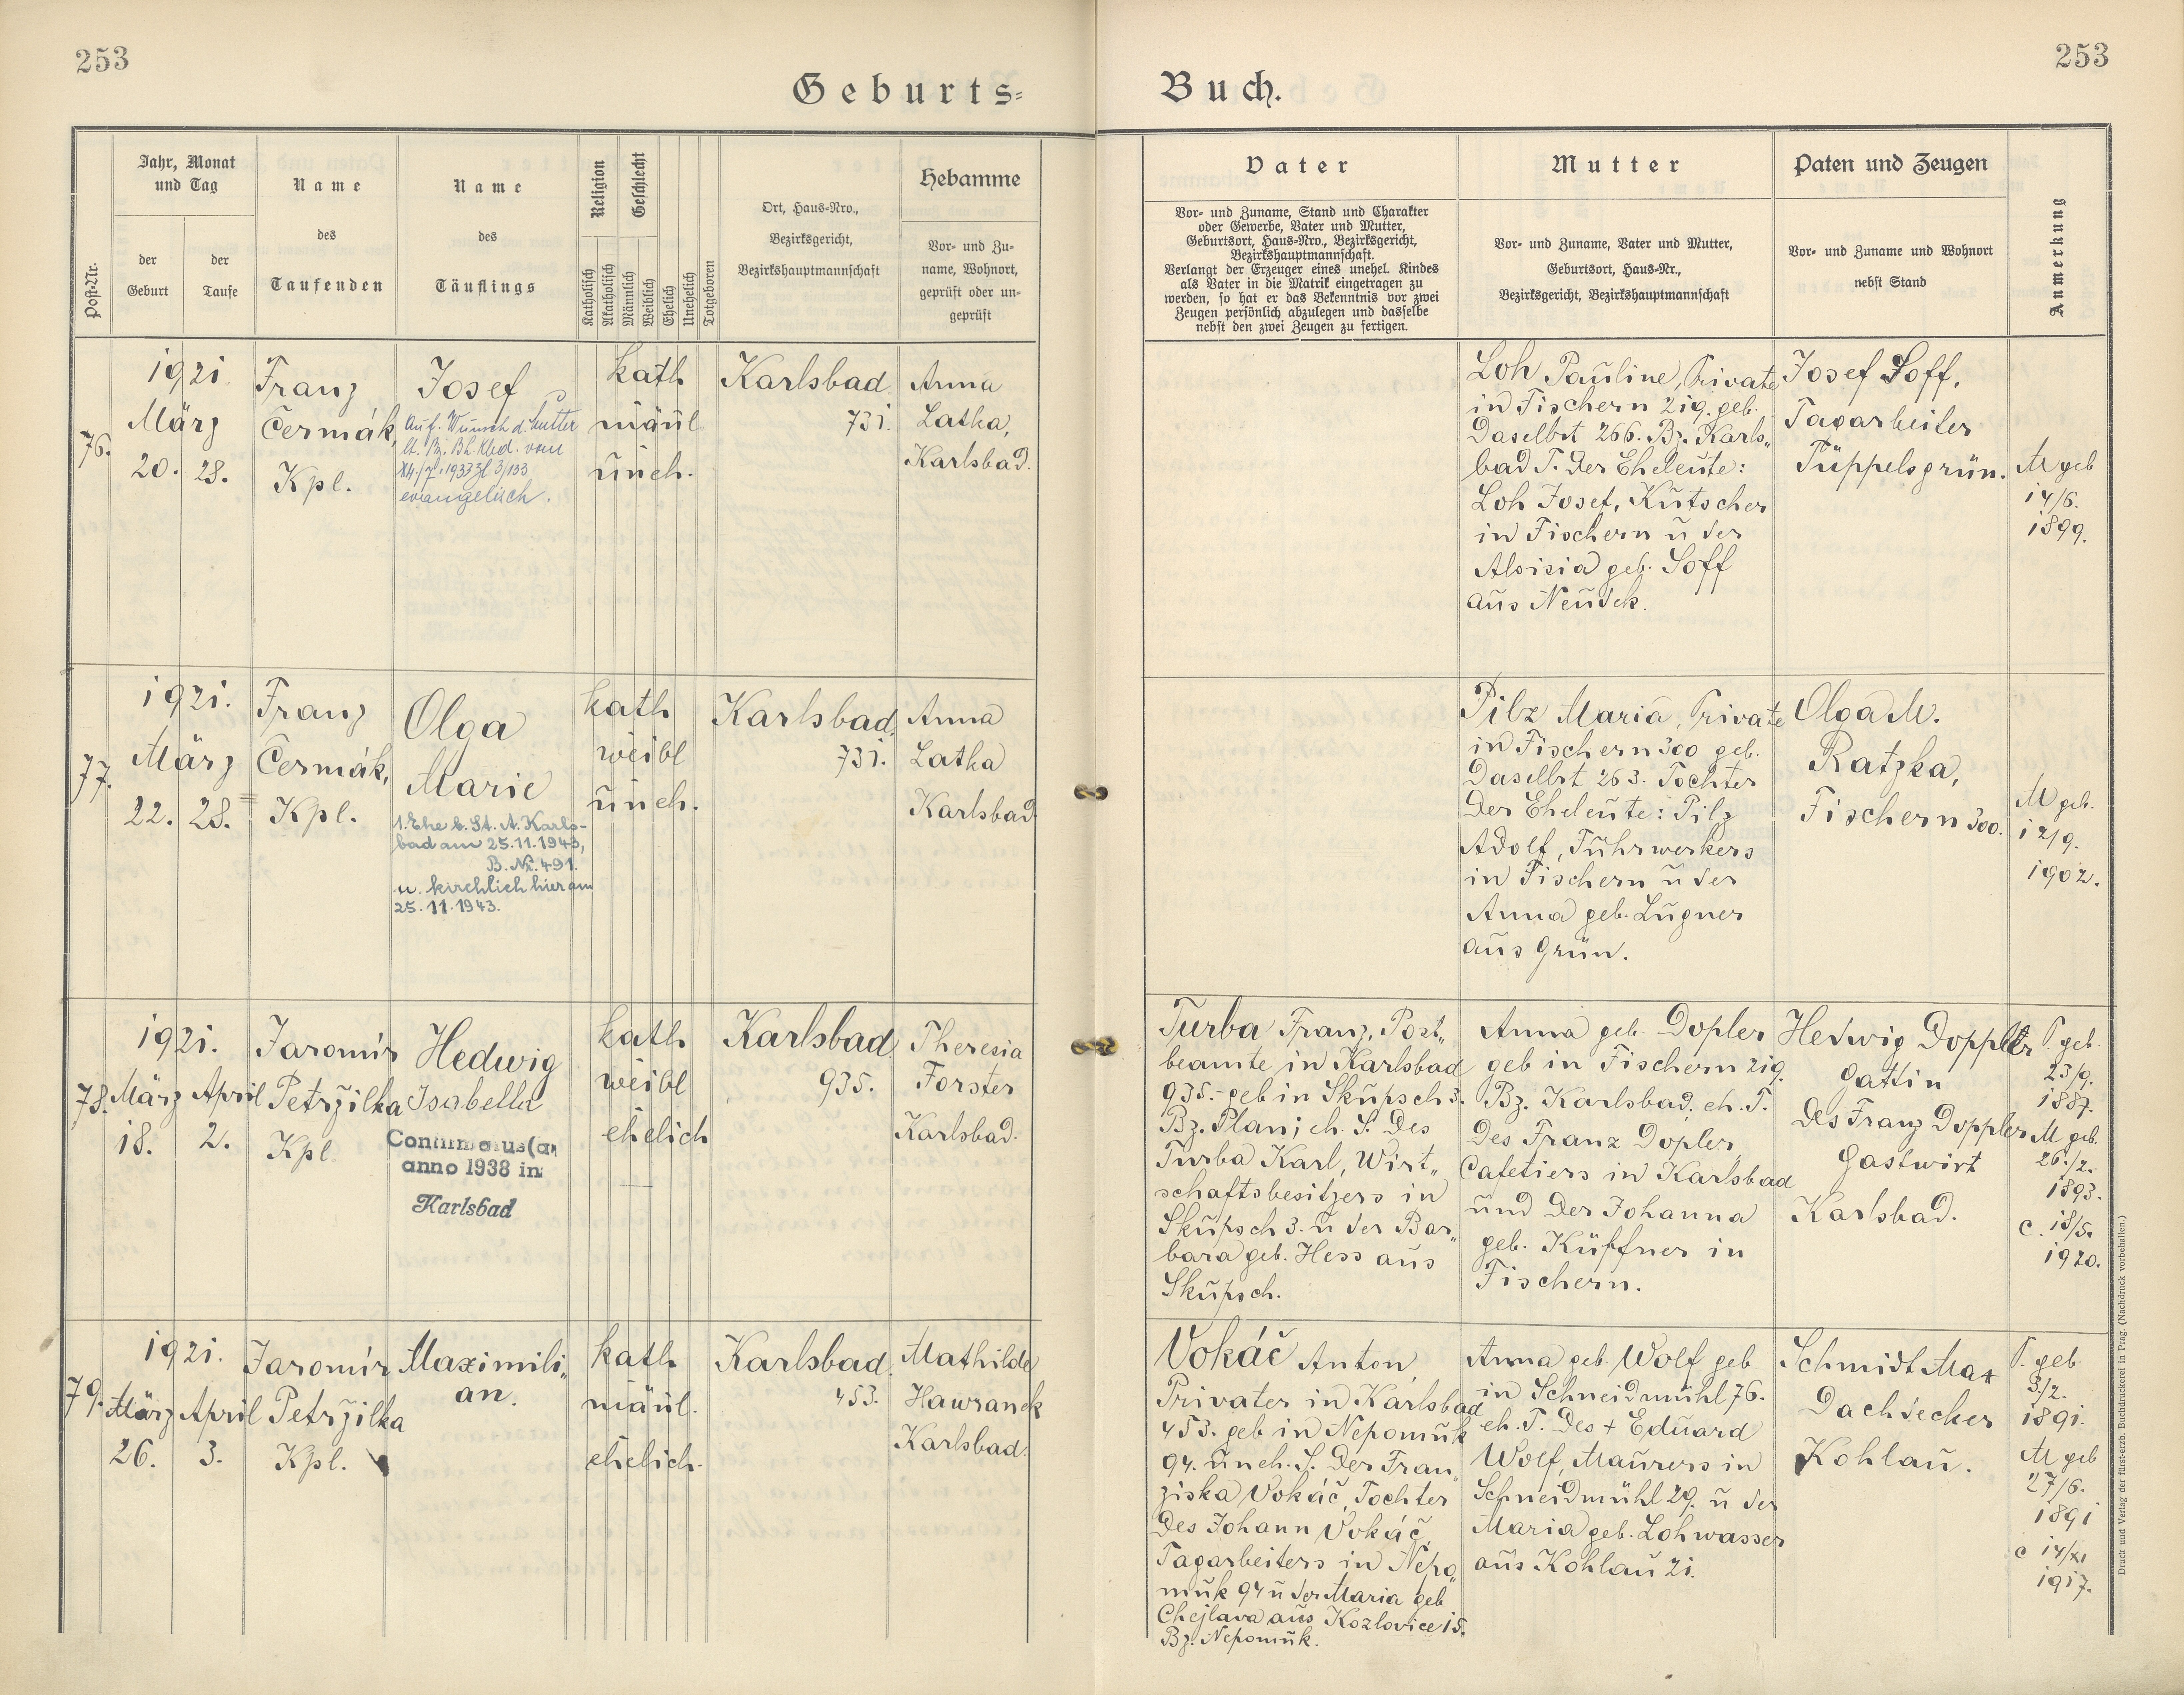 253
253
Geburts=
Buch.
Post-Nr.
Jahr, Monat
und Tag
der
Geburt
der
Taufe
Name
des
Taufenden
Name
des
Täuflings
Religion
Geschlecht
Katholisch
Akatholisch
Männlich
Weiblich
Ehelich
Unehelich
Totgeboren
Ort, Haus-Nro.,
Bezirksgericht,
Bezirkshauptmannschaft
Hebamme
Vor- und Zu-
name, Wohnort,
geprüft oder un-
geprüft
Vater
Vor- und Zuname, Stand und Charakter
oder Gewerbe, Vater und Mutter,
Geburtsort, Haus-Nro., Bezirksgericht,
Bezirkshauptmannschaft.
Verlangt der Erzeuger eines unehel. Kindes
als Vater in die Matrik eingetragen zu
werden, so hat er das Bekenntnis vor zwei
Zeugen persönlich abzulegen und dasselbe
nebst den zwei Zeugen zu fertigen.
Mutter
Vor- und Zuname, Vater und Mutter,
Geburtsort, Haus-Nr.,
Bezirksgericht, Bezirkshauptmannschaft
Paten und Zeugen
Vor- und Zuname und Wohnort
nebst Stand
Anmerkung
76.
1921.
März
20. 28.
Franz
Čermák,
Kpl.
Josef
Auf. Wunsch d. Mutter
lt. Bz. Bh. Kbd. vom
14./7. 1933 Zl 3/133
evangelisch.
kath
mänl.
ūneh.
Karlsbad
731.
Anna
Latka,
Karlsbad.
Loh Pauline, Private
in Fischern 219. geb.
Daselbst 266. Bz. Karls„
bad T. Der Eheleūte:
Loh Josef, Kūtscher
in Fischern ū der
Aloisia geb. Soff
aūs Neūdek.
Josef Soff,
Tagarbeiter
Tüppelsgrün.
M geb
14/6.
1899.
77.
1921.
März
22. 28.
Franz
Čermák,
Kpl.
Olga
Marie
1. Ehe b. St. A. Karls-
bad am 25.11.1943,
B. Nr. 491.
u. kirchlich hier am
25.11.1943.
kath
weibl
ūneh.
Karlsbad.
731.
Anna
Latka
Karlsbad
Pilz Maria, Private
in Fischern 300 geb.
Daselbst 263. Tochter
Der Eheleūte: Pilz
Adolf, Fūhrwerkers
in Fischern ū der
Anna geb. Lūgner
aūs Grün.
Olga M.
Ratzka,
Fischern 300.
M geb.
12/9.
1902.
78.
1921.
März April
18. 2.
Jaromír
Petržilka
Kpl.
Hedwig
Isabella
Confirmatus(a)
anno 1938 in
Karlsbad
kath
weibl
ehelich
Karlsbad
935.
Theresia
Forster
Karlsbad.
Turba Franz, Post„
beamte in Karlsbad
935.- geb in Skūpsch 3.
Bz. Plan; eh. S. Des
Turba Karl, Wirt„
schaftsbesitzers in
Skūpsch 3. ū der Bar„
bara geb. Hess aūs
Skūpsch.
Anna geb. Dopler
geb in Fischern 219.
Bz. Karlsbad. eh. T.
Des Franz Dopler,
Cafetiers in Karlsbad
ūnd Der Johanna
geb. Küffner in
Fischern.
Hedwig Doppler
Gattin
Des Franz Doppler
Gastwirt
Karlsbad.
V. geb.
23/9.
1887.
M geb.
26./2.
1893.
c. 18/5.
1920.
79.
1921.
März April
26. 3.
Jaromír
Petržilka
Kpl.
Maximili„
an.
kath
mänl.
ehelich.
Karlsbad.
453.
Mathilde
Hawranek
Karlsbad.
Vokáč Anton,
Privater in Karlsbad
453. geb in Nepomūk
94. ūneh. S. Der Fran„
ziska Vokáč, Tochter
Des Johann Vokáč,
Tagarbeiters in Nepo„
mūk 94 ū der Maria geb
Chejlava aūs Kozlovice 15.
Bz. Nepomūk.
Anna geb. Wolf geb
in Schneidmühl 76.
eh. T. Des + Edūard
Wolf, Maūrers in
Schneidmühl 29. ū der
Maria geb. Lohwasser
aūs Kohlaū 21.
Schmidt Max
Dachdecker
Kohlaū.
V. geb.
3./2.
1891.
M geb
27/6.
1891
c 14/XI
1917.
Druck und Verlag der fürst-erzb. Buchdruckerei in Prag. (Nachdruck vorbehalten.)